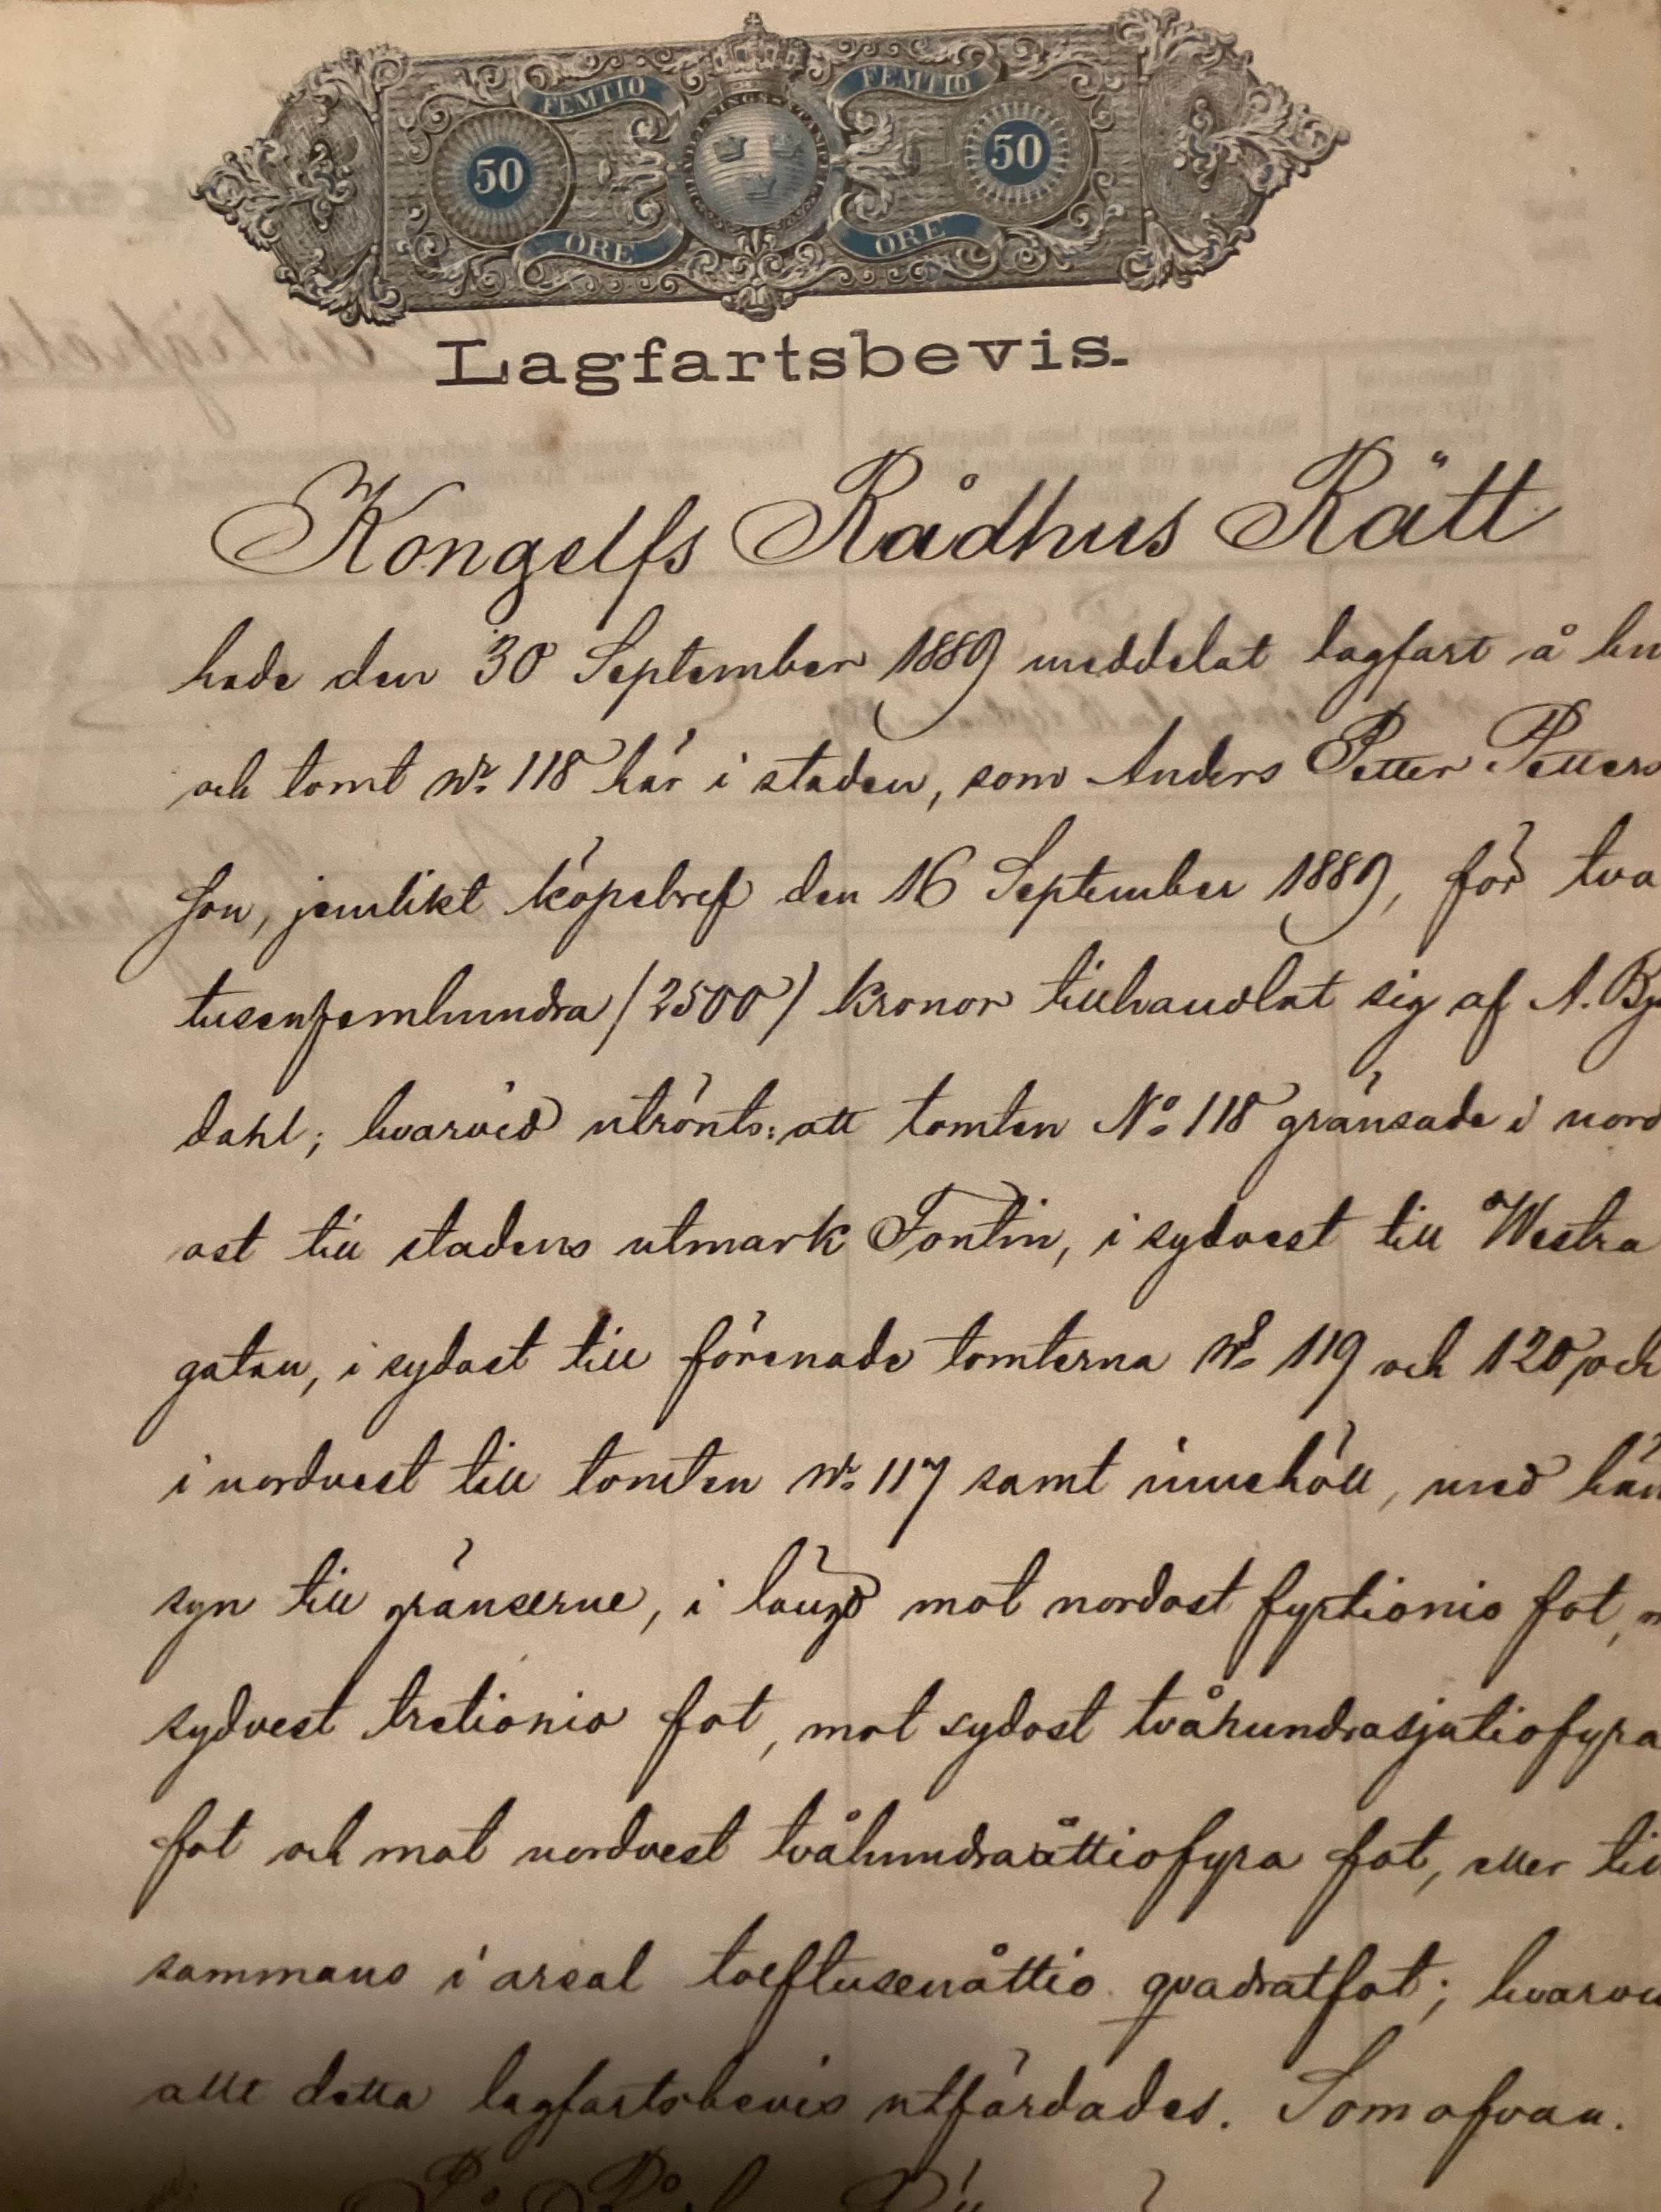 FEMTIO FEMTIO
50 50
ÖRE ÖRE
Lagfartsbevis.
Kongelfs Rådhus Rätt
hade den 30 September 1889 meddelat lagfart å hu
och tomt No 118 här i staden, som Anders Petter Petters
son, jemlikt köpebref den 16 September 1889, för två
tusenfemhundra /2500/ kronor tillhandlat sig af A. By
dahl; hvarvid utrönts: att tomten No 118 gränsade i nord
ost till stadens utmark Fontin, i sydvest till Westra
gatan, i sydost till förenade tomterna No 119 och 120, och
i nordvest till tomten No 117 samt innehöll, med hän
syn till gränserne, i längd mot nordost fyrtionio fot, m
sydvest tretionio fot, mot sydost tvåhundrasjutiofyra
fot och mot nordvest tvåhundraåttiofyra fot, eller till
sammans i areal tolftusenåttio qvadratfot; hvaröf
allt detta lagfartsbevis utfärdades. Som ofvan.